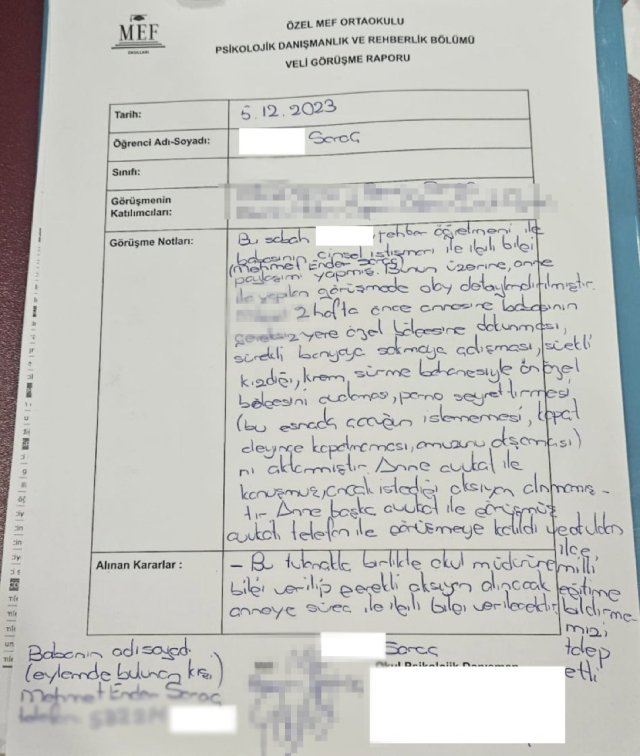 MEF
OKULLARI
ÖZEL MEF ORTAOKULU
PSİKOLOJİK DANIŞMANLIK VE REHBERLİK BÖLÜMÜ
VELİ GÖRÜŞME RAPORU
Tarih: 5.12.2023
Öğrenci Adı-Soyadı: Saraç
Sınıfı:
Görüşmenin Katılımcıları:
Görüşme Notları:
Bu sabah rehber öğretmeni ile
babasının cinsel istismarı ile ilgili bilgi
(Mehmet Ender Saraç)
paylaşımı yapmış. Bunun üzerine, anne
ile yapılan görüşmede olay detaylandırılmıştır.
2 hafta önce annesine babasının
gereksiz yere özel bölgesine dokunması,
sürekli banyoya sokmaya çalışması, sürekli
kızdığı, krem sürme bahanesiyle ön özel
bölgesini, porno seyrettirmesi
(bu esnada çocuğun istememesi, kapat
deyince kapatmaması,)
nı aktarmıştır. Anne avukat ile
konuşmuş, ancak istediği aksiyon alınmamış-
tır. Anne başka avukat ile görüşmüş
avukat telefon ile görüşmeye katıldı ve okuldan
ilçe
milli
eğitime
bildirme-
mizi
talep
etti
Alınan Kararlar :
- Bu tutanakla birlikte okul müdürüne
bilgi verilip gerekli aksiyon alınacak
anneye süreç ile ilgili bilgi verilecektir.
Babanın adı soyadı
(eylemde bulunan kişi)
Mehmet Ender Saraç
Saraç
Okul Psikolojik Danışman